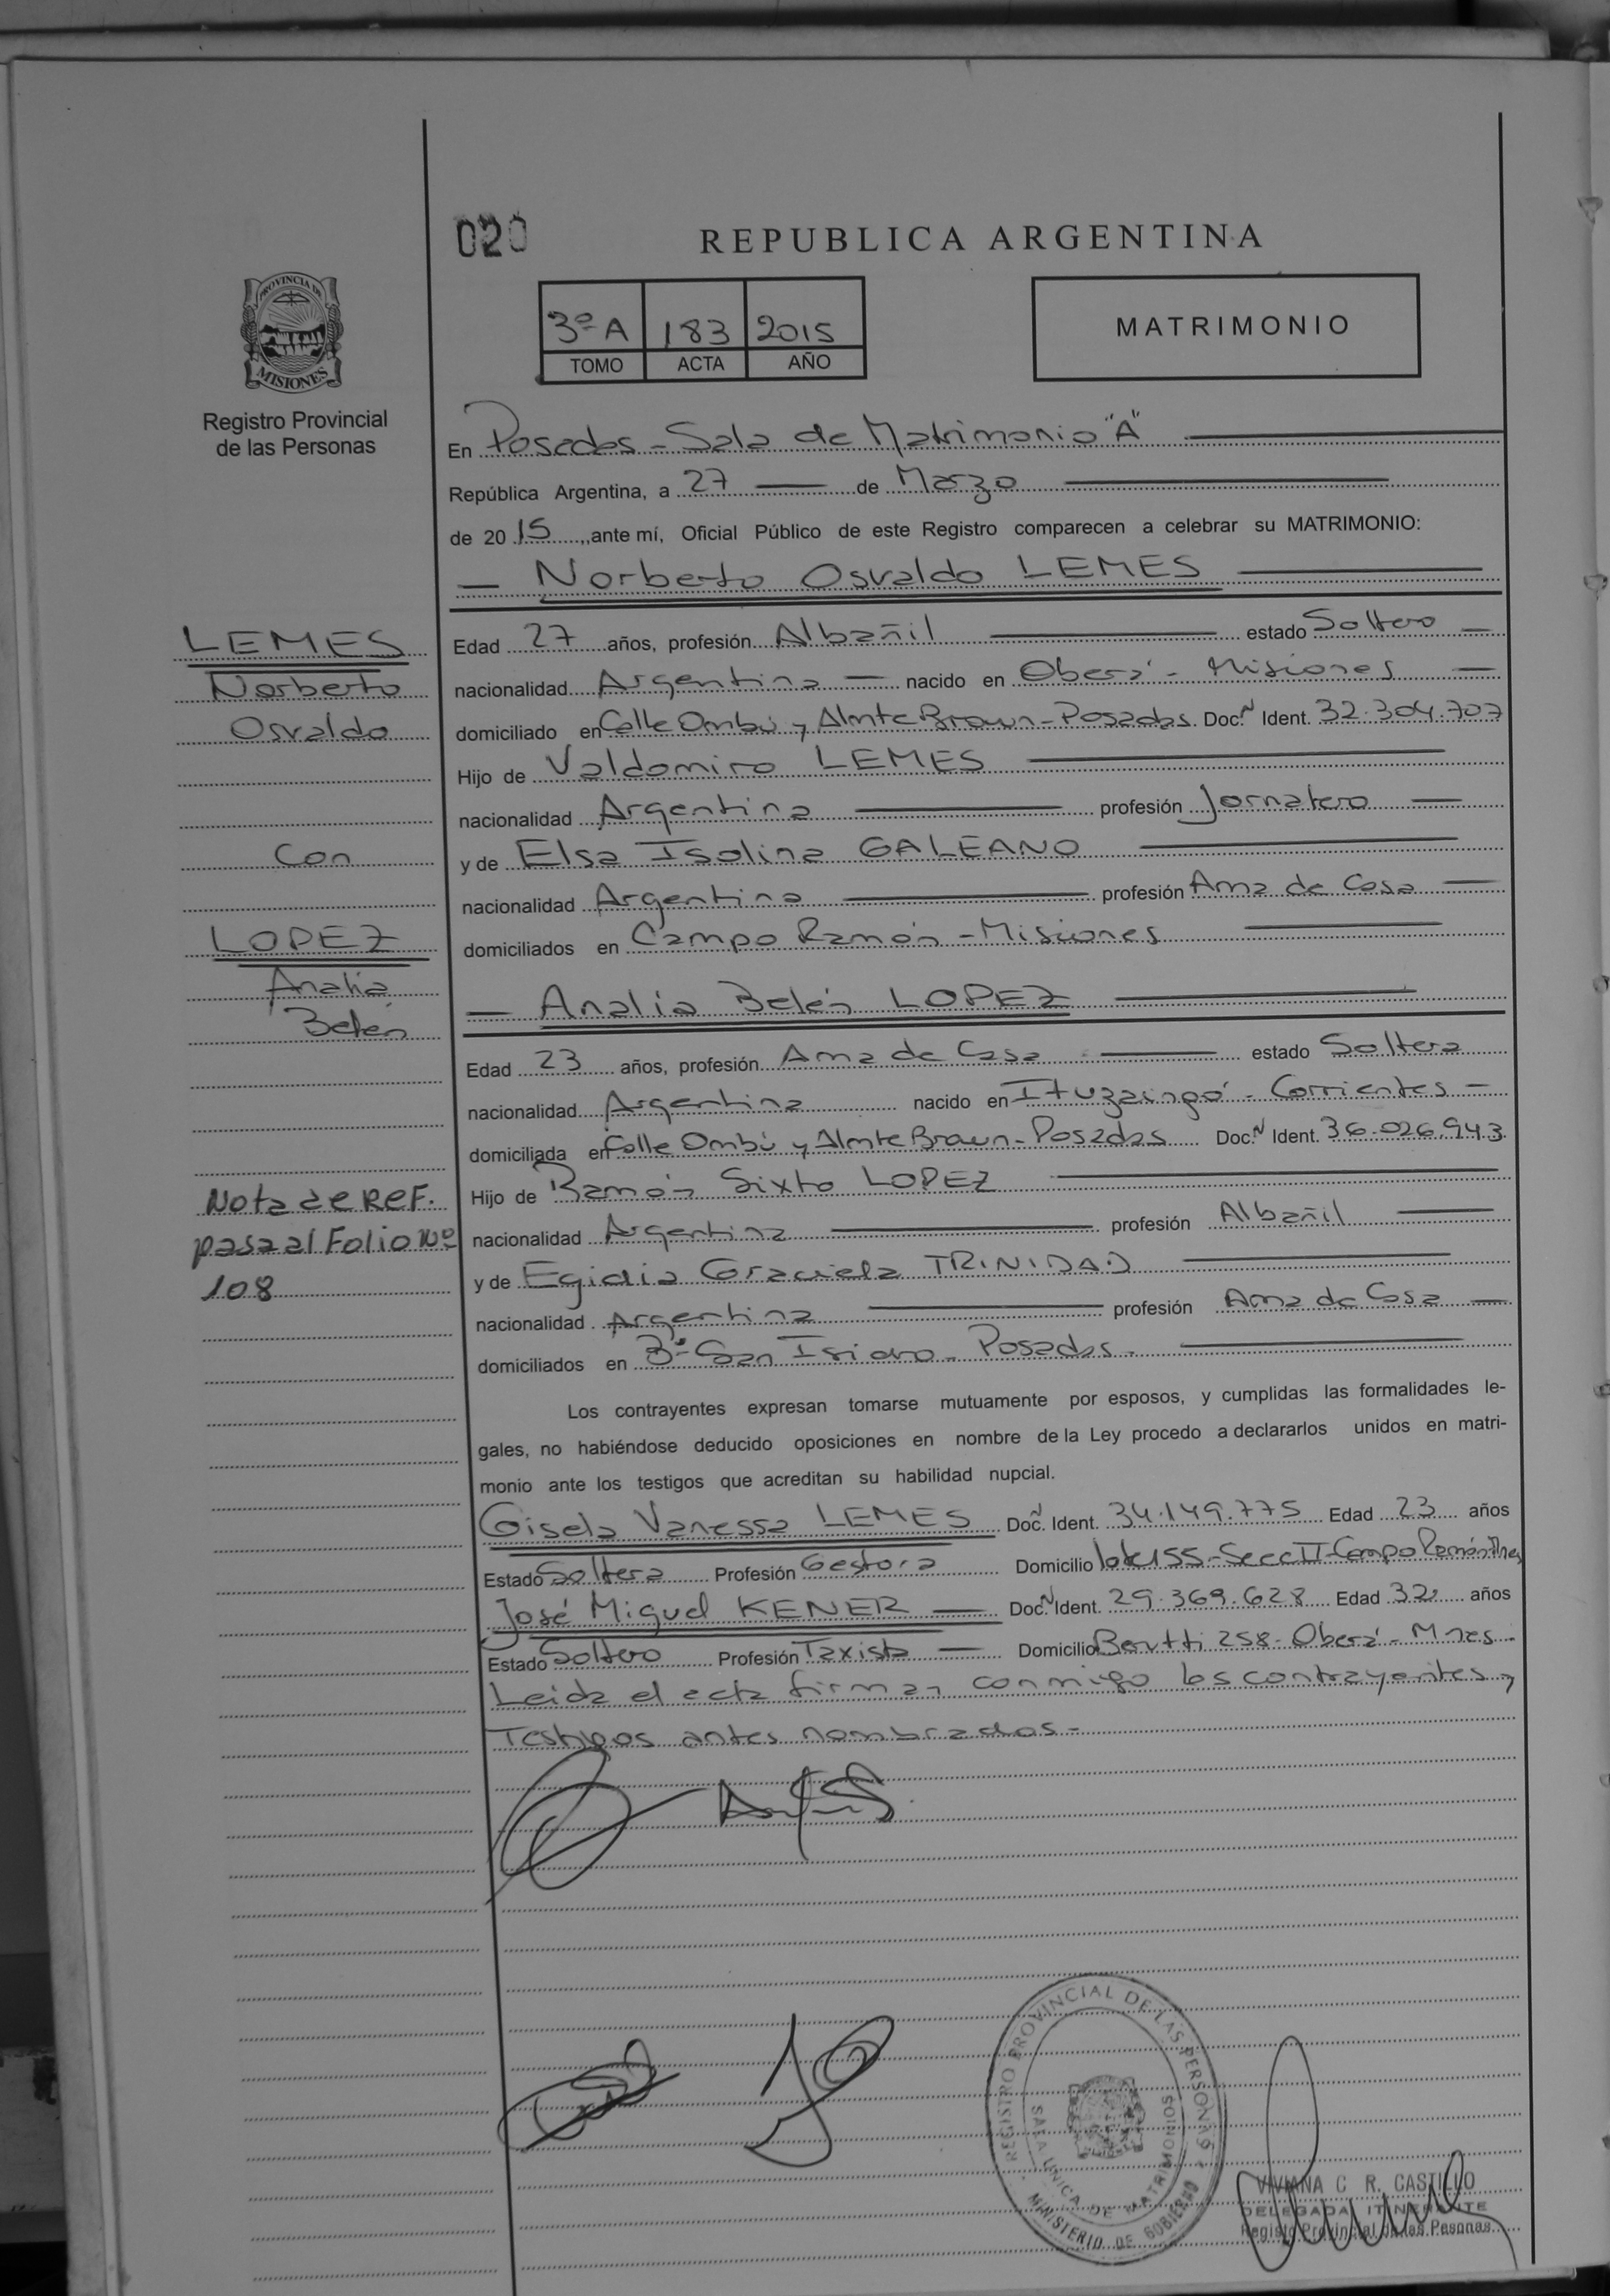 020
REPUBLICA ARGENTINA
PROVINCIA DE
MISIONES
Registro Provincial
de las Personas
3º A 183 2015
TOMO ACTA AÑO
MATRIMONIO
En Posadas - Sala de Matrimonio "A"
República Argentina, a 27 de Marzo
de 20 15 ,,ante mí, Oficial Público de este Registro comparecen a celebrar su MATRIMONIO:
Norberto Osvaldo LEMES
LEMES
Norberto
Osvaldo
Con
LOPEZ
Analia
Belén
Nota de REF.
pasa al Folio Nº
108
Edad 27 años, profesión Albañil estado Soltero
nacionalidad Argentina nacido en Oberá - Misiones
domiciliado en Calle Ombú y Almte Brown - Posadas. Doc. N Ident. 32.304.707
Hijo de Valdomiro LEMES
nacionalidad Argentina profesión Jornalero
y de Elsa Isolina GALEANO
nacionalidad Argentina profesión Ama de Casa
domiciliados en Campo Ramón - Misiones
Analía Belén LOPEZ
Edad 23 años, profesión Ama de Casa estado Soltera
nacionalidad Argentina nacido en Ituzaingó - Corrientes -
domiciliada en Calle Ombú y Almte Brown - Posadas Doc. N Ident. 36.026.943
Hijo de Ramón Sixto LOPEZ
nacionalidad Argentina profesión Albañil
y de Egidia Graciela TRINIDAD
nacionalidad Argentina profesión Ama de Casa
domiciliados en Bº San Isidro - Posadas -
Los contrayentes expresan tomarse mutuamente por esposos, y cumplidas las formalidades le-
gales, no habiéndose deducido oposiciones en nombre de la Ley procedo a declararlos unidos en matri-
monio ante los testigos que acreditan su habilidad nupcial.
Gisela Vanessa LEMES Doc. N Ident. 34.149.775 Edad 23 años
Estado Soltera Profesión Gestora Domicilio lote 155 - Secc II - Campo Ramón
José Miguel KENER Doc. N Ident. 29.369.628 Edad 32 años
Estado Soltero Profesión Taxista Domicilio Berutti 258 - Oberá - Mnes.
Leida el acta firman conmigo los contrayentes y
Testigos antes nombrados -
REGISTRO PROVINCIAL DE LAS PERSONAS
SALA UNICA DE MATRIMONIOS
MINISTERIO DE GOBIERNO
VIVIANA C R. CASTILLO
DELEGADA ITINERANTE
Registro Provincial de las Personas